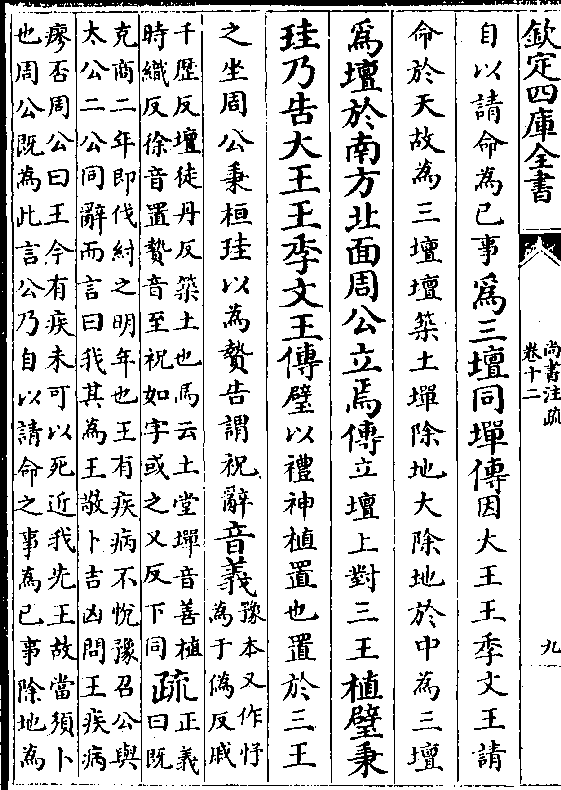 欽定四庫全書
尚書注疏
卷十二
九
自以請命為己事爲三壇同墠傳因大王王季文王請
命於天故為三壇壇築土墠除地大除地於中為三壇
爲壇於南方北面周公立焉傳立壇上對三王植璧秉
珪乃告大王王季文王傳璧以禮神植置也置於三王
之坐周公秉桓珪以為贄告謂祝辭音義豫本又作忬
為于偽反戚
千歴反壇徒丹反築土也馬云土堂墠音善植
時織反徐音置贄音至祝如字或之又反下同疏正義
曰既
克商二年即伐紂之明年也王有疾病不悅豫召公與
太公二公同辭而言曰我其為王敬卜吉凶問王疾病
瘳否周公曰王今有疾未可以死近我先王故當須卜
也周公既為此言公乃自以請命之事為己事除地為